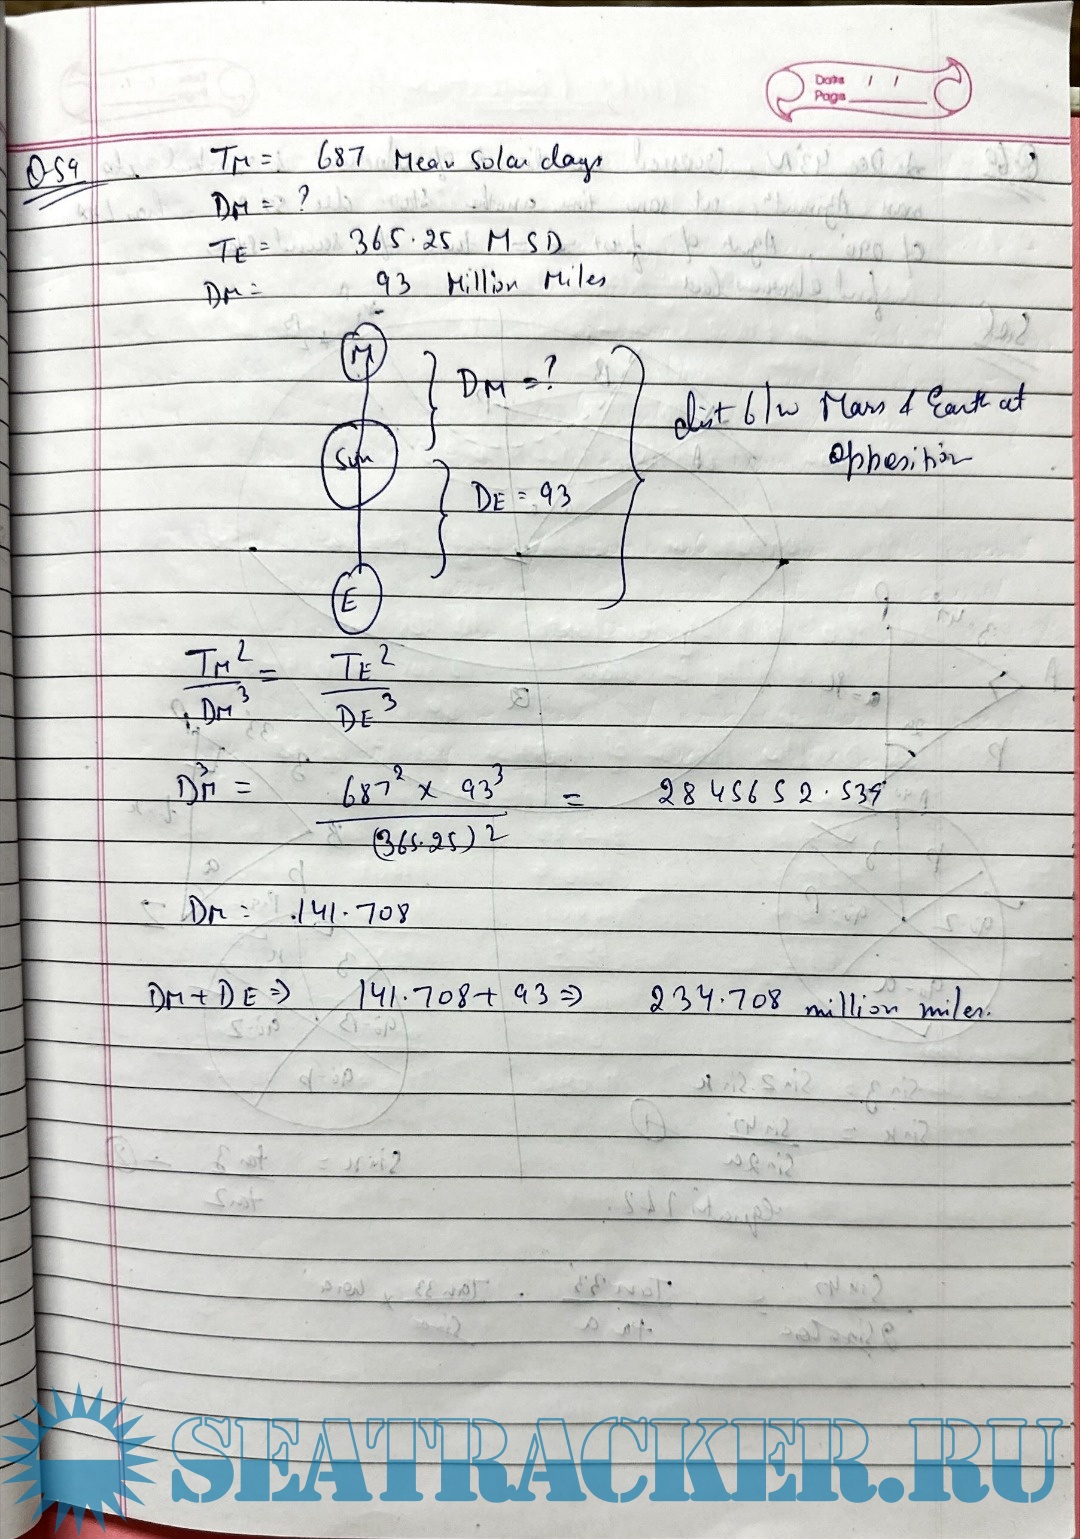 Date / /
Page
Q-59
TM = 687 Mean Solar days
DM = ?
TE = 365.25 MSD
DM = 93 Million Miles
M
DM = ?
dist b/w Mars & Earth at
opposition
Sun
DE = 93
E
TM² / DM³ = TE² / DE³
DM³ = 687² x 93³ / (365.25)² = 2845652.539
DM = 141.708
DM + DE ⇒ 141.708 + 93 ⇒ 234.708 million miles.
SEATRACKER.RU